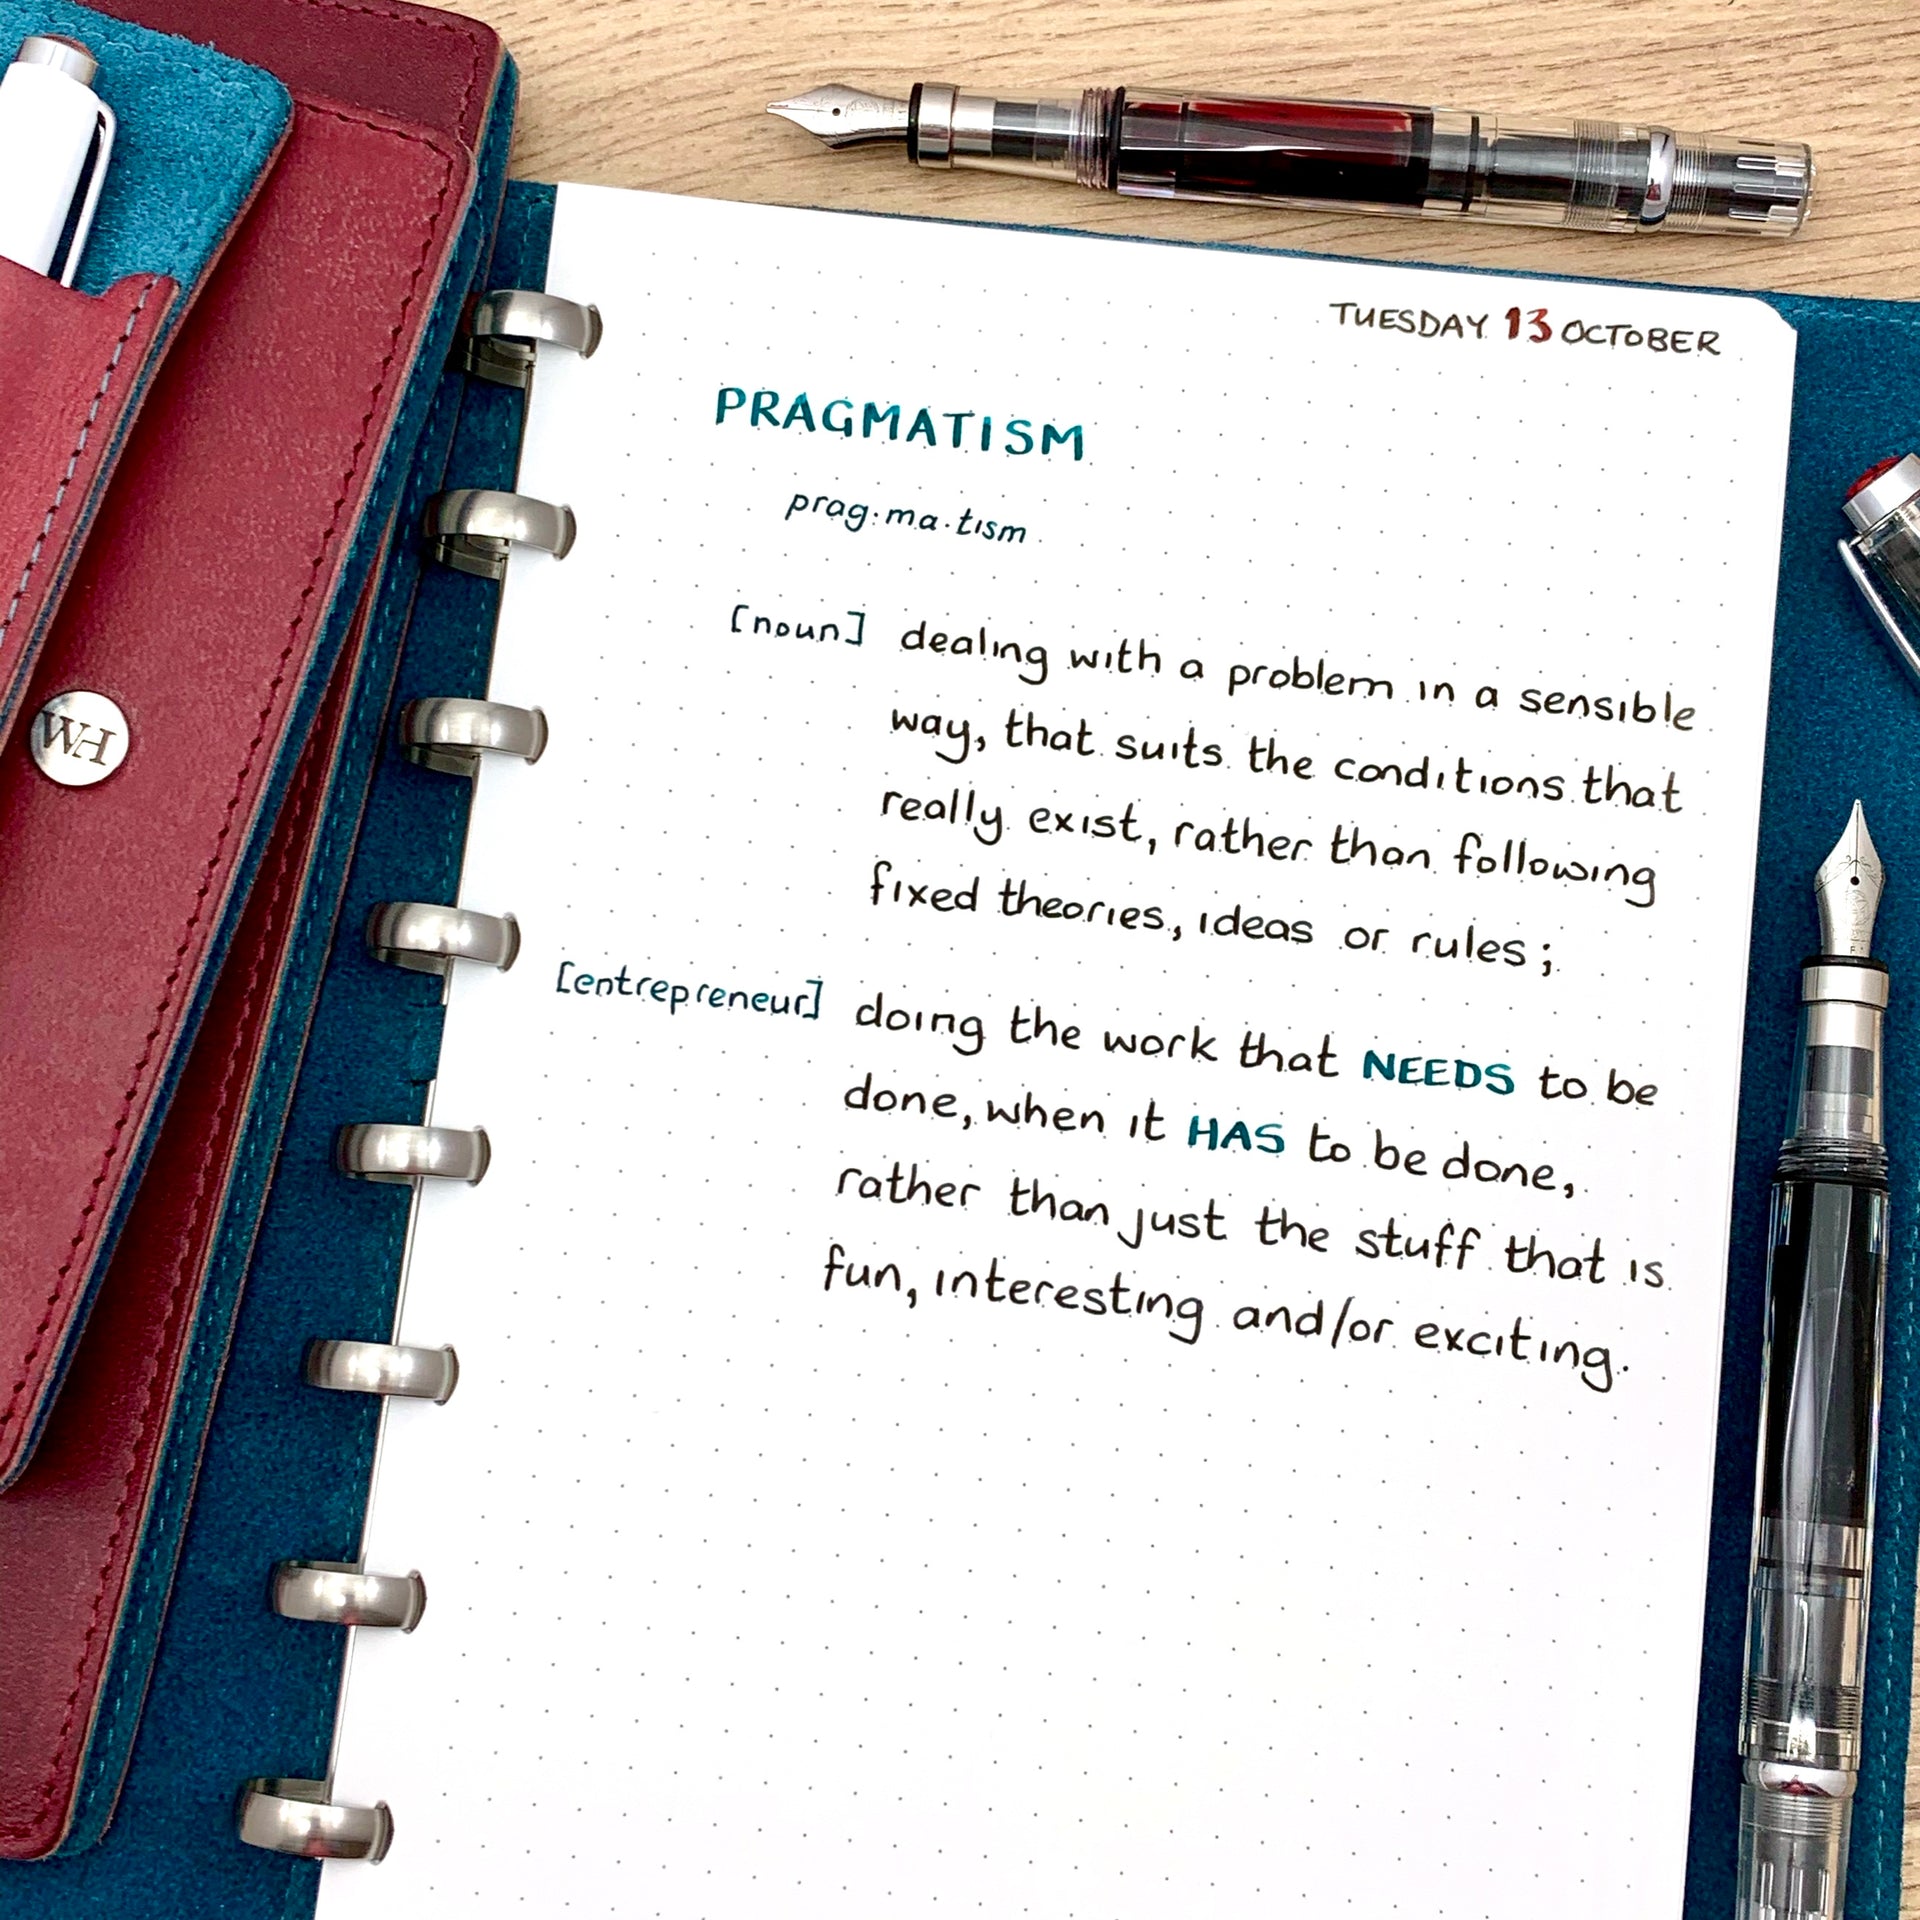 TUESDAY 13 OCTOBER
PRAGMATISM
prag·ma·tism
[noun] dealing with a problem in a sensible
way, that suits the conditions that
really exist, rather than following
fixed theories, ideas or rules;
[entrepreneur] doing the work that NEEDS to be
done, when it HAS to be done,
rather than just the stuff that is
fun, interesting and/or exciting.
WH